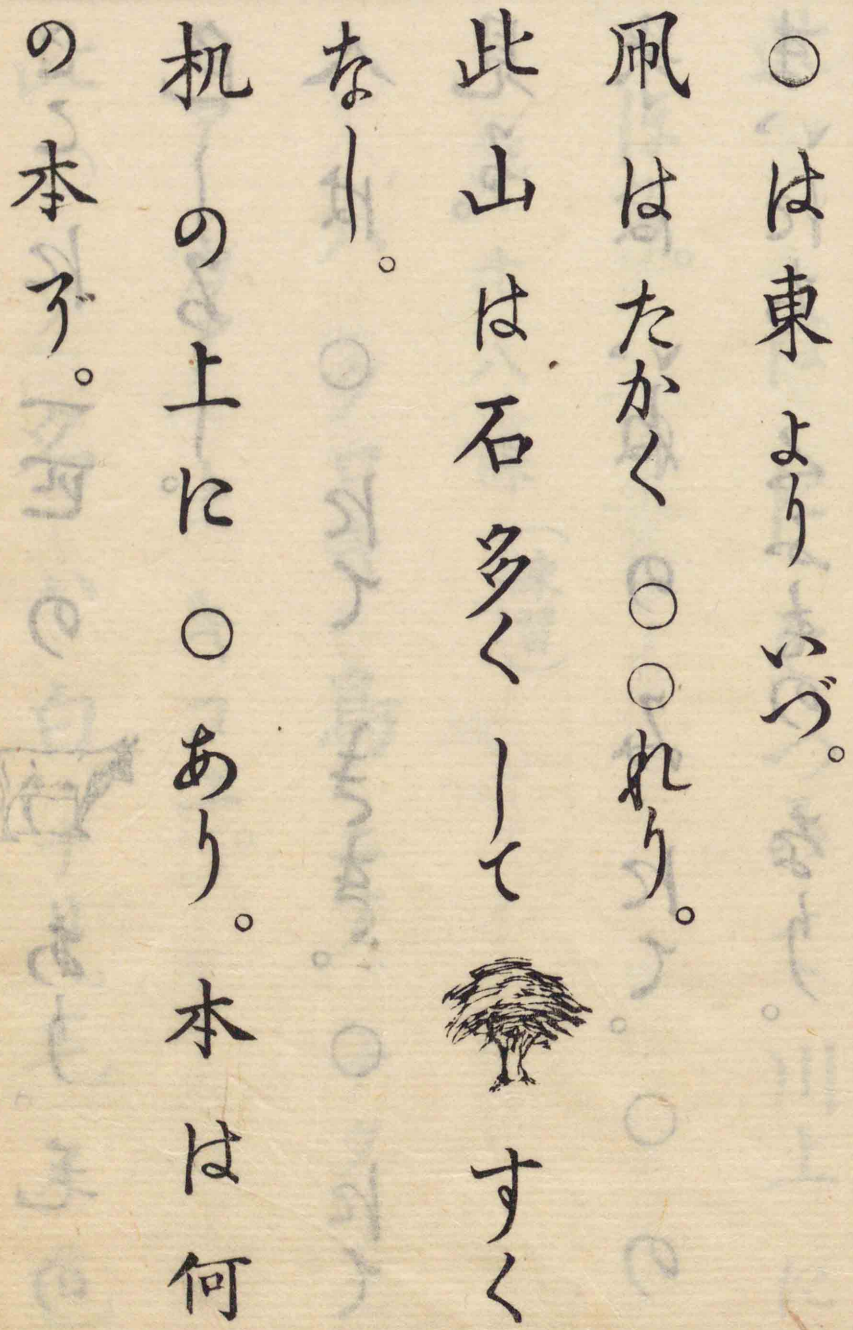 ○は東よりいづ。
凧はたかく○○れり。
此山は石多くしてすく
なし。
机の上に○あり。本は何
の本ぞ。